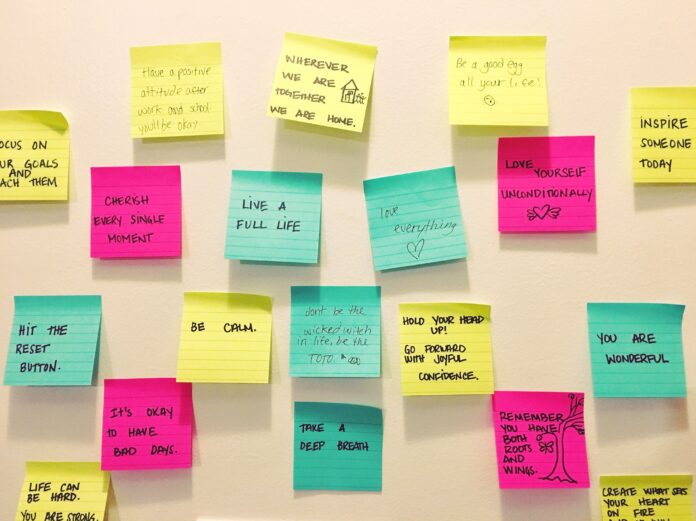 Have a positive
attitude after
work and school
you'll be okay
WHEREVER
WE ARE
TOGETHER
WE ARE HOME.
Be a good egg
all your life!
OCUS ON
UR GOALS
AND
ACH THEM
INSPIRE
SOMEONE
TODAY
CHERISH
EVERY SINGLE
MOMENT
LIVE A
FULL LIFE
love
everything
LOVE
YOURSELF
UNCONDITIONALLY
HIT THE
RESET
BUTTON.
BE CALM.
dont be the
wicked witch
in life, be the
TOTO.
HOLD YOUR HEAD
UP!
GO FORWARD
WITH JOYFUL
CONFIDENCE.
YOU ARE
WONDERFUL
IT'S OKAY
TO HAVE
BAD DAYS.
TAKE A
DEEP BREATH
REMEMBER
YOU HAVE
BOTH
ROOTS
AND
WINGS.
LIFE CAN
BE HARD.
YOU ARE STRONG.
CREATE WHAT SETS
YOUR HEART
ON FIRE